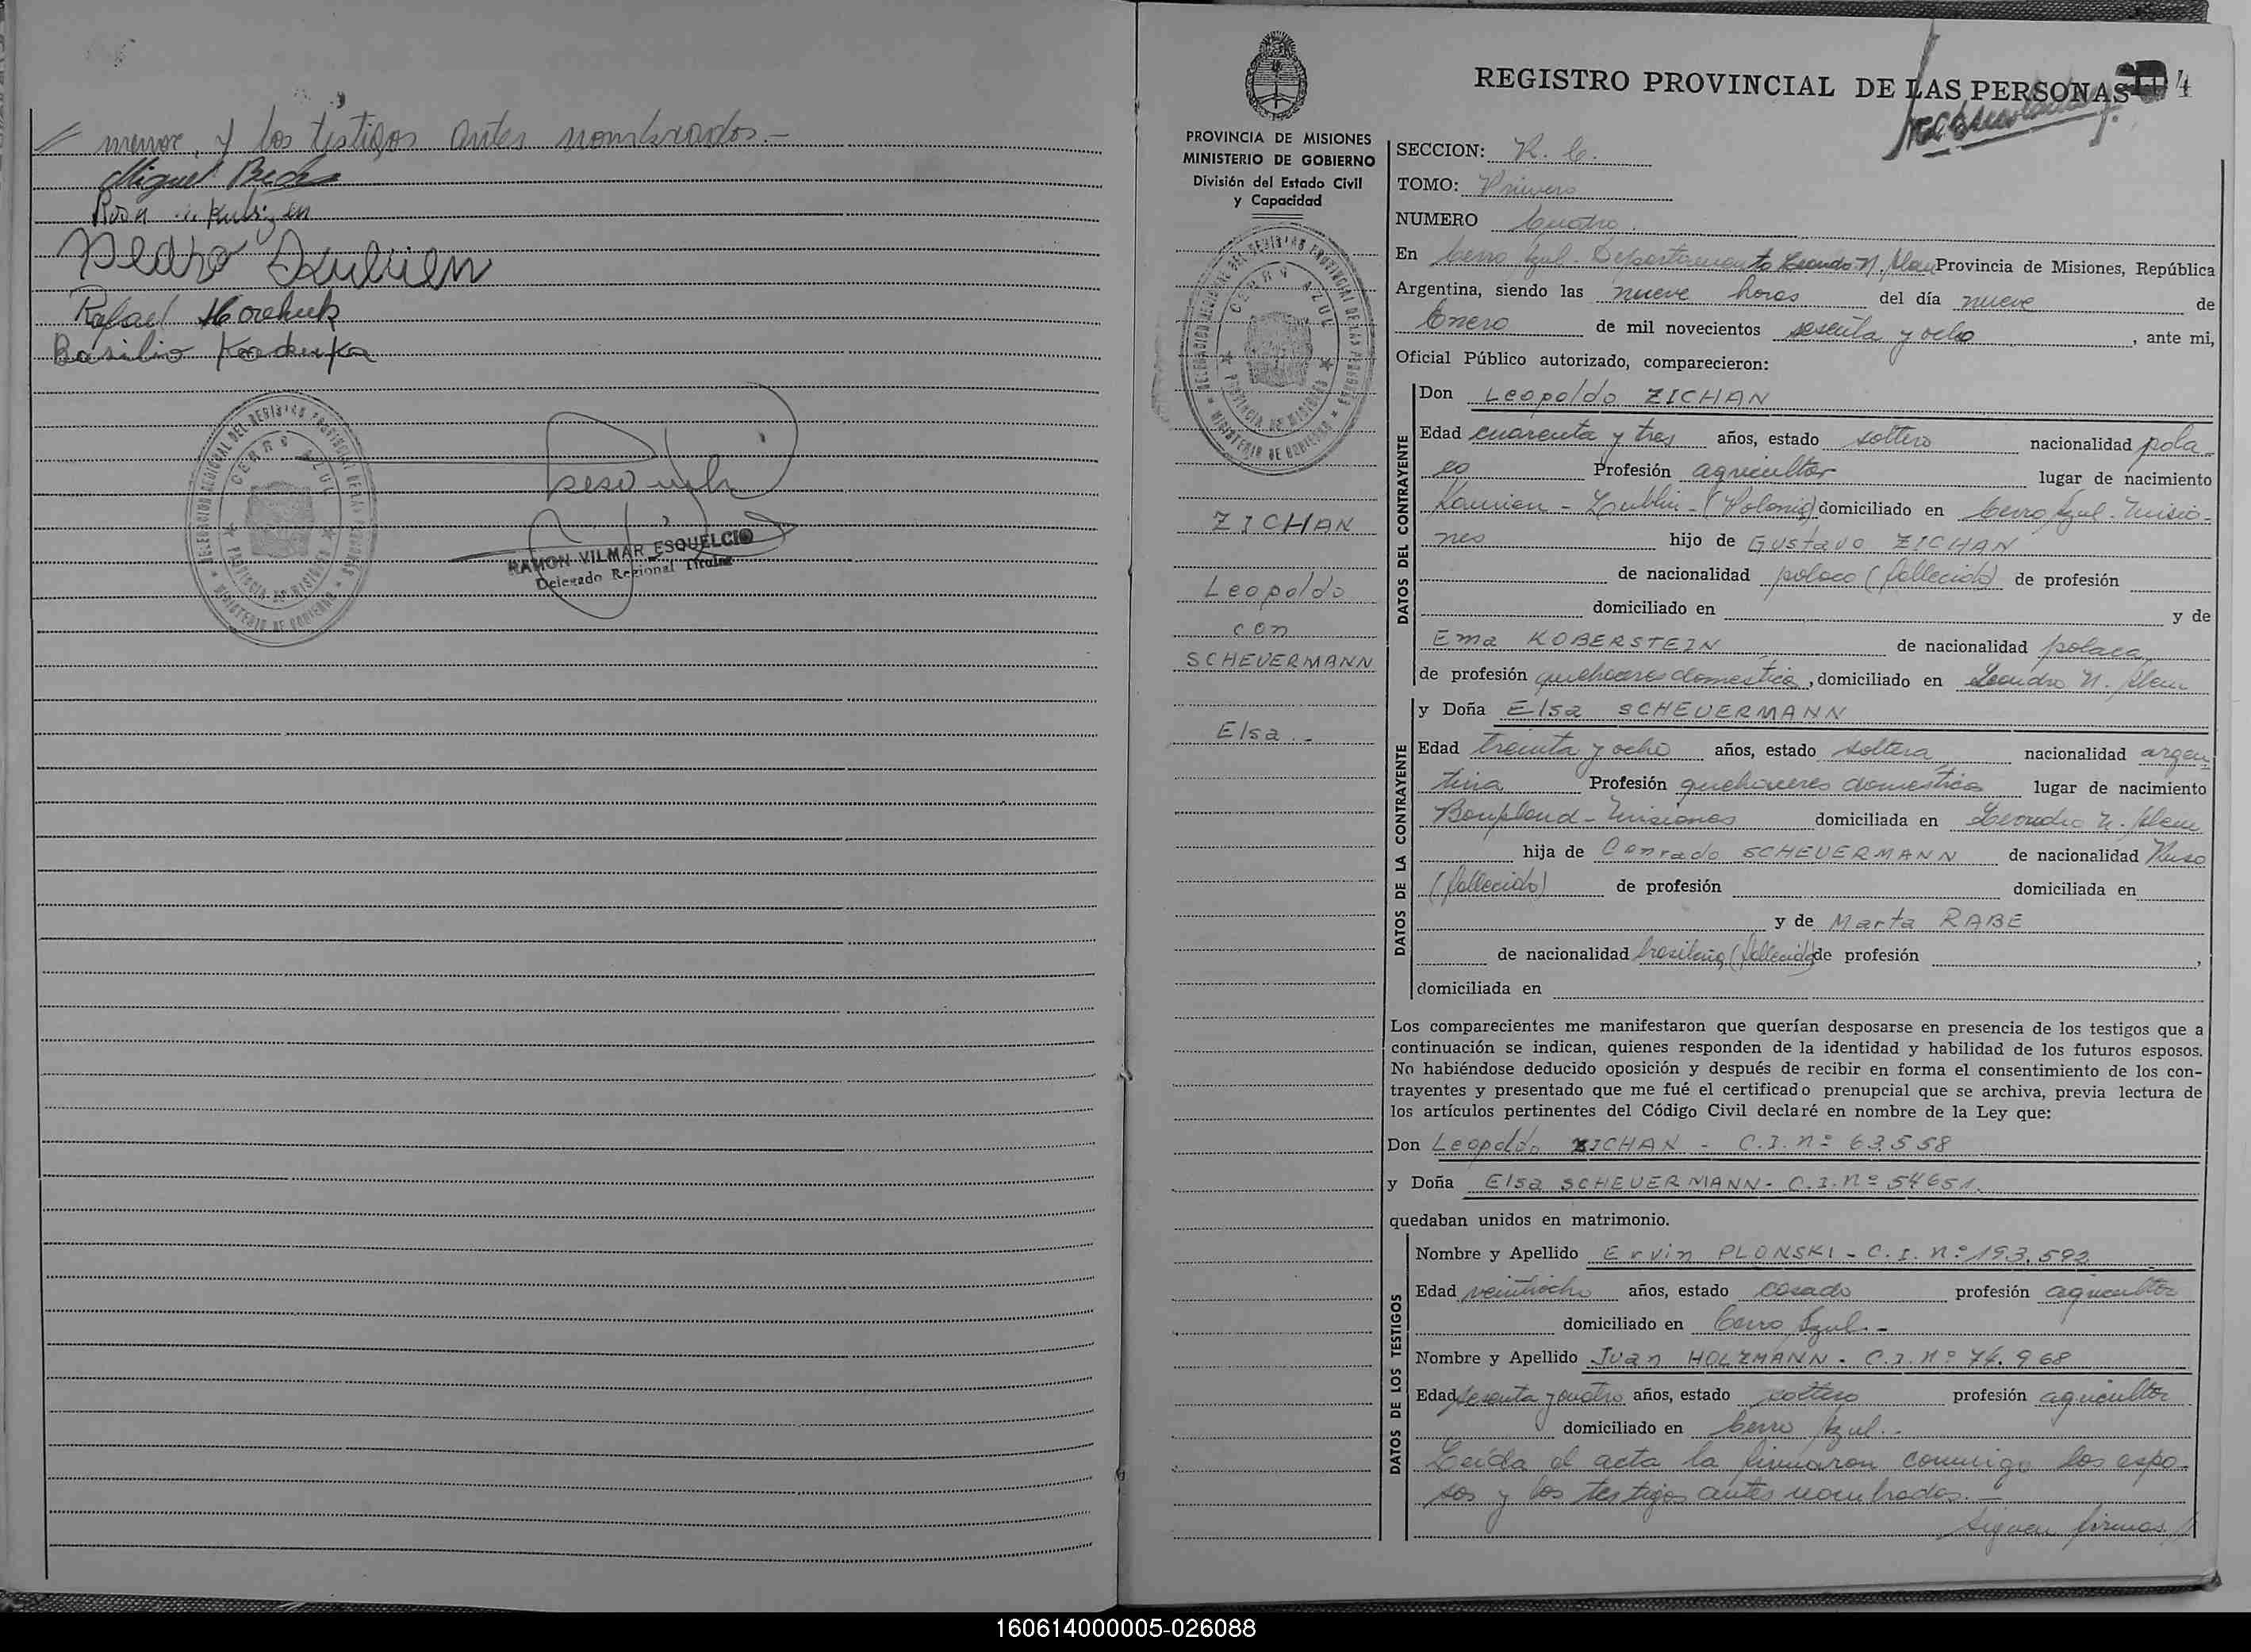 // menor, y los testigos antes nombrados.-
Miguel
Pedro
Rafael Horchuk
Basilio
DELEGACION REGIONAL DEL REGISTRO PROVINCIAL DE LAS PERSONAS
CERRO AZUL
PROVINCIA DE MISIONES
MINISTERIO DE GOBIERNO
RAMON VILMAR ESQUELCIO
Delegado Regional Titular
REGISTRO PROVINCIAL DE LAS PERSONAS
4
PROVINCIA DE MISIONES
MINISTERIO DE GOBIERNO
División del Estado Civil
y Capacidad
DELEGACION REGIONAL DEL REGISTRO PROVINCIAL DE LAS PERSONAS
CERRO AZUL
PROVINCIA DE MISIONES
MINISTERIO DE GOBIERNO
ZICHAN
Leopoldo
con
SCHEUERMANN
Elsa.-
SECCION: R. C.
TOMO: Primero
NUMERO Cuatro.
En Cerro Azul - Departamento Leandro N. Alem Provincia de Misiones, República
Argentina, siendo las nueve horas del día nueve de
Enero de mil novecientos sesenta y ocho, ante mi,
Oficial Público autorizado, comparecieron:
DATOS DEL CONTRAYENTE
Don Leopoldo ZICHAN
Edad cuarenta y tres años, estado soltero nacionalidad pola-
co Profesión agricultor lugar de nacimiento
Kamien - Lublin - (Polonia) domiciliado en Cerro Azul - Misio-
nes hijo de Gustavo ZICHAN
de nacionalidad polaco (fallecido) de profesión
domiciliado en y de
Ema KOBERSTEIN de nacionalidad polaca
de profesión quehaceres domestica, domiciliado en Leandro N. Alem
DATOS DE LA CONTRAYENTE
y Doña Elsa SCHEUERMANN
Edad treinta y ocho años, estado soltera nacionalidad argen-
tina Profesión quehaceres domestica lugar de nacimiento
Bonpland - Misiones domiciliada en Leandro N. Alem
hija de Conrado SCHEUERMANN de nacionalidad Ruso
(fallecido) de profesión domiciliada en
y de Marta RABE
de nacionalidad brasileña (fallecida) de profesión ,
domiciliada en
Los comparecientes me manifestaron que querían desposarse en presencia de los testigos que a
continuación se indican, quienes responden de la identidad y habilidad de los futuros esposos.
No habiéndose deducido oposición y después de recibir en forma el consentimiento de los con-
trayentes y presentado que me fué el certificado prenupcial que se archiva, previa lectura de
los artículos pertinentes del Código Civil declaré en nombre de la Ley que:
Don Leopoldo ZICHAN - C.I. nº 63558
y Doña Elsa SCHEUERMANN - C.I. Nº 54651.
quedaban unidos en matrimonio.
DATOS DE LOS TESTIGOS
Nombre y Apellido Ervin PLONSKI - C.I. nº 193.592
Edad veintiocho años, estado casado profesión agricultor
domiciliado en Cerro Azul.-
Nombre y Apellido Juan HOLZMANN - C.I. Nº 74.968
Edad sesenta y cuatro años, estado soltero profesión agricultor
domiciliado en Cerro Azul.-
Leída el acta la firmaron conmigo los espo-
sos y los testigos antes nombrados.-
Siguen firmas //
160614000005-026088